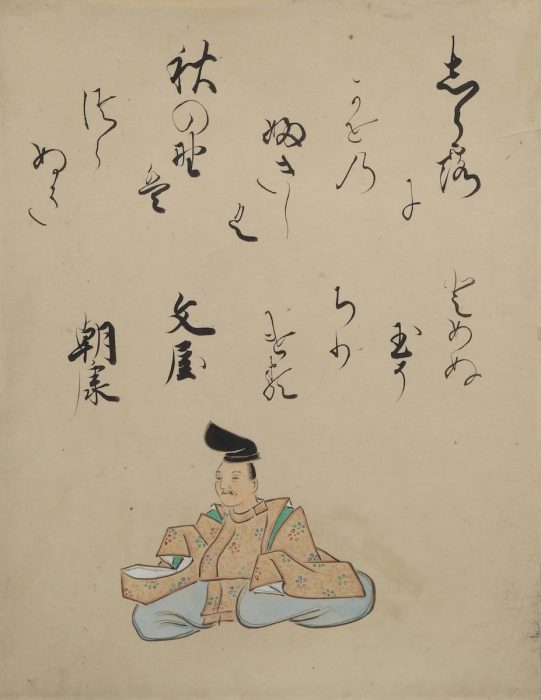 志ら露
に
かせ乃
婦きし
く
秋の野
は
つら
ぬき
とめぬ
玉そ
ちり
ける
文屋
朝康